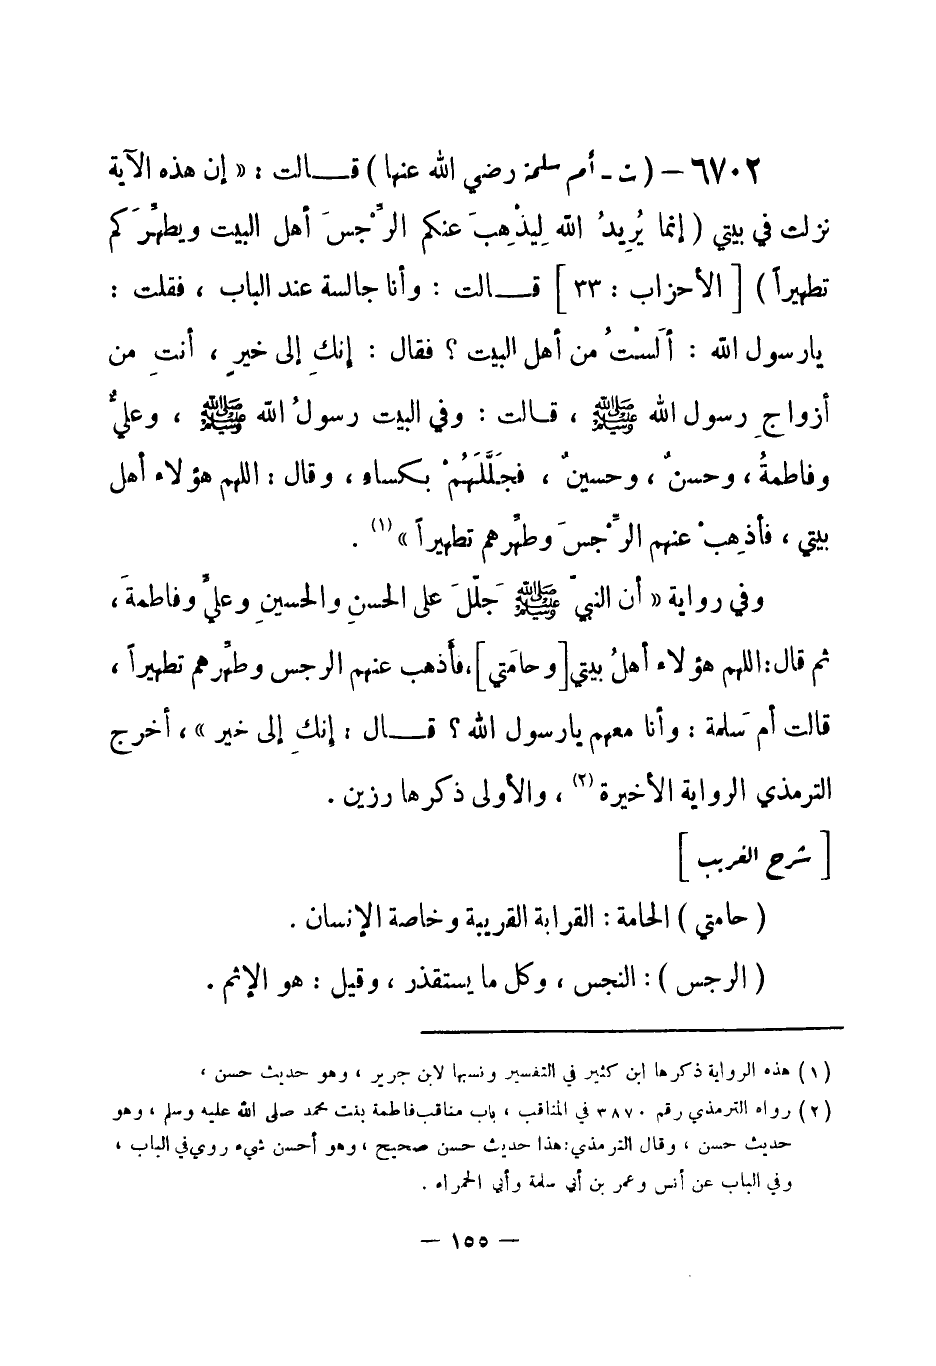 ٦٧٠٢ – ( ت - أم سلمة رضي الله عنها ) قـــالت : « إن هذه الآية
نزلت في بيتي ( إنما يُرِيدُ الله لِيذْهِبَ عنكم الرِّجْسَ أهل البيت ويطهِّرَكم
تطهيراً ) [ الأحزاب : ٣٣ ] قـــالت : وأنا جالسة عند الباب ، فقلت :
يارسول الله : ألَسْتُ من أهل البيت ؟ فقال : إنكِ إلى خيرٍ ، أنتِ من
أزواجِ رسول الله ﷺ ، قـالت : وفي البيت رسولُ الله ﷺ ، وعليٌّ
وفاطمةُ ، وحسنٌ ، وحسينٌ ، فجَلَّلَهُمْ بكساء ، وقال : اللهم هؤلاء أهل
بيتي ، فأذهِبْ عنهم الرِّجْسَ وطهِّرهم تطهيراً » (١) .
وفي رواية « أن النبيّ ﷺ جَلّلَ على الحسنِ والحسينِ وعليٍّ وفاطمةَ ،
ثم قال: اللهم هؤلاء أهلُ بيتي [وحامَتي] ، فأَذهب عنهم الرجس وطهِّرهم تطهيراً ،
قالت أم سَلمة : وأنا معهم يارسول الله ؟ قـــال : إنكِ إلى خير » ، أخرج
الترمذي الرواية الأخيرة (٢) ، والأولى ذكرها رزين .
[ شرح الغريب ]
( حامتي ) الحامة : القرابة القريبة وخاصة الإنسان .
( الرجس ) : النجس ، وكل ما يستقذر ، وقيل : هو الإثم .
(١) هذه الرواية ذكرها ابن كثير في التفسير ونسبها لابن جرير ، وهو حديث حسن ،
(٢) رواه الترمذي رقم ٣٨٧٠ في المناقب ، باب مناقب فاطمة بنت محمد صلى الله عليه وسلم ، وهو
حديث حسن ، وقال الترمذي: هذا حديث حسن صحيح ، وهو أحسن شيء روي في الباب ،
وفي الباب عن أنس وعمر بن أبي سلمة وأبي الحمراء .
– ١٥٥ –